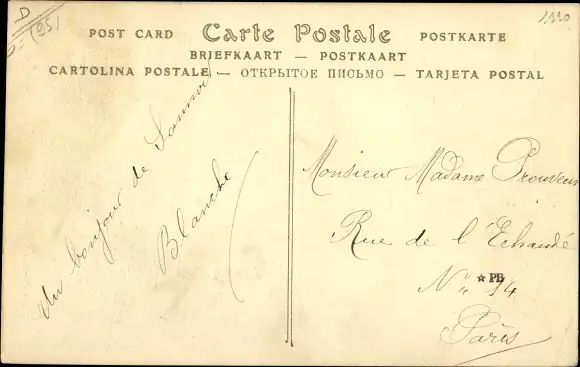 D
(95)
1110
POST CARD Carte Postale POSTKARTE
BRIEFKAART — POSTKAART
CARTOLINA POSTALE — ОТКРЫТОЕ ПИСЬМО — TARJETA POSTAL
un bonjour de Sannois
Blanche
Monsieur Madame
Rue de l'Echaudé
N° 14
★ PB
Paris